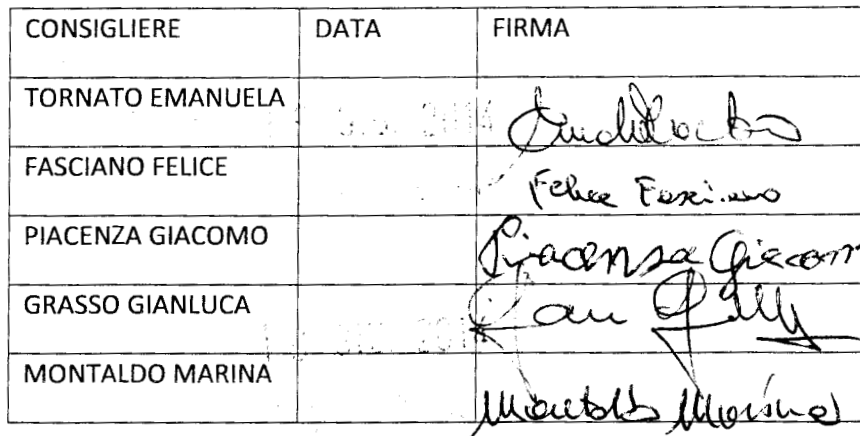 CONSIGLIERE DATA FIRMA
TORNATO EMANUELA
FASCIANO FELICE Felice Fasciano
PIACENZA GIACOMO Piacenza Giacom
GRASSO GIANLUCA
MONTALDO MARINA Montaldo Marina